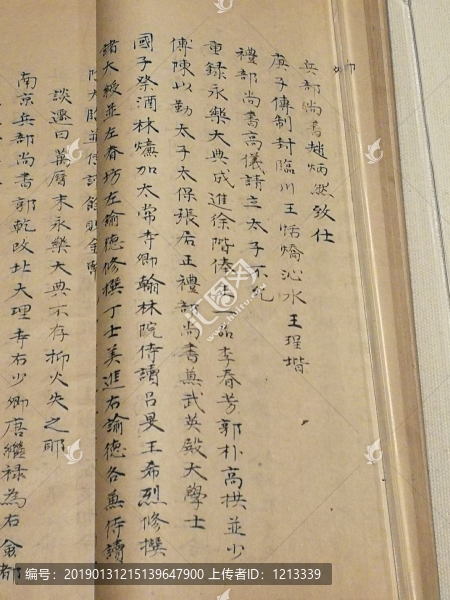 卿
兵部尚書趙炳然致仕
庚子傳制封臨川王恬燆沁水王珵堦
禮部尚書高儀請立太子不允
重録永樂大典成進徐階俸正一品李春芳郭朴高拱並少
傅陳以勤太子太保張居正禮部尚書兼武英殿大學士
國子祭酒林燫加太常寺卿翰林院侍讀呂旻王希烈修撰
諸大綬並左春坊左諭德修撰丁士美進右諭德各兼侍讀
談遷曰萬曆末永樂大典不存抑火失之耶
南京兵部尚書郭乾改北大理寺右少卿唐繼禄為右僉都
编号：20190131215139647900 上传者ID：1213339